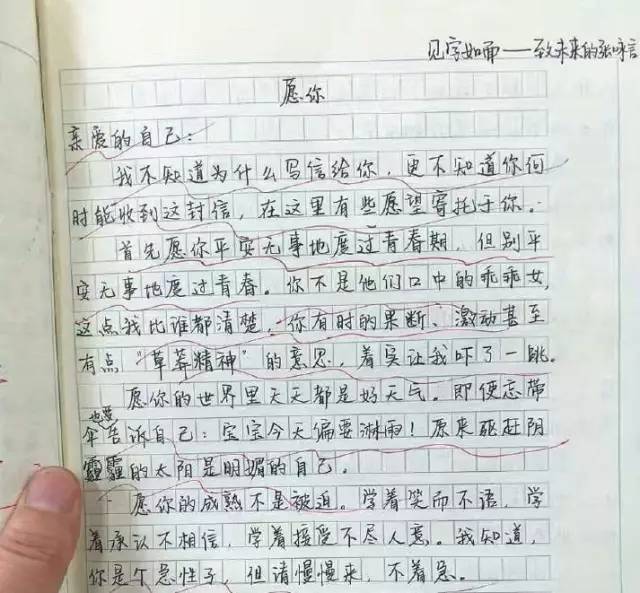 见字如面——致未来的张咏言
愿你
亲爱的自己：
我不知道为什么写信给你，更不知道你何
时能收到这封信，在这里有些愿望寄托于你。
首先愿你平安无事地度过青春期，但别平
安无事地度过青春。你不是他们口中的乖乖女，
这点我比谁都清楚，你有时的果断、激动甚至
有点“草莽精神”的意思，着实让我吓了一跳。
愿你的世界里天天都是好天气。即使忘带
伞也要告诉自己：宝宝今天偏要淋雨！原来驱赶阴
霾的太阳是明媚的自己。
愿你的成熟不是被迫。学着笑而不语，学
着承认不相信，学着接受不尽人意。我知道，
你是个急性子，但请慢慢来，不着急。